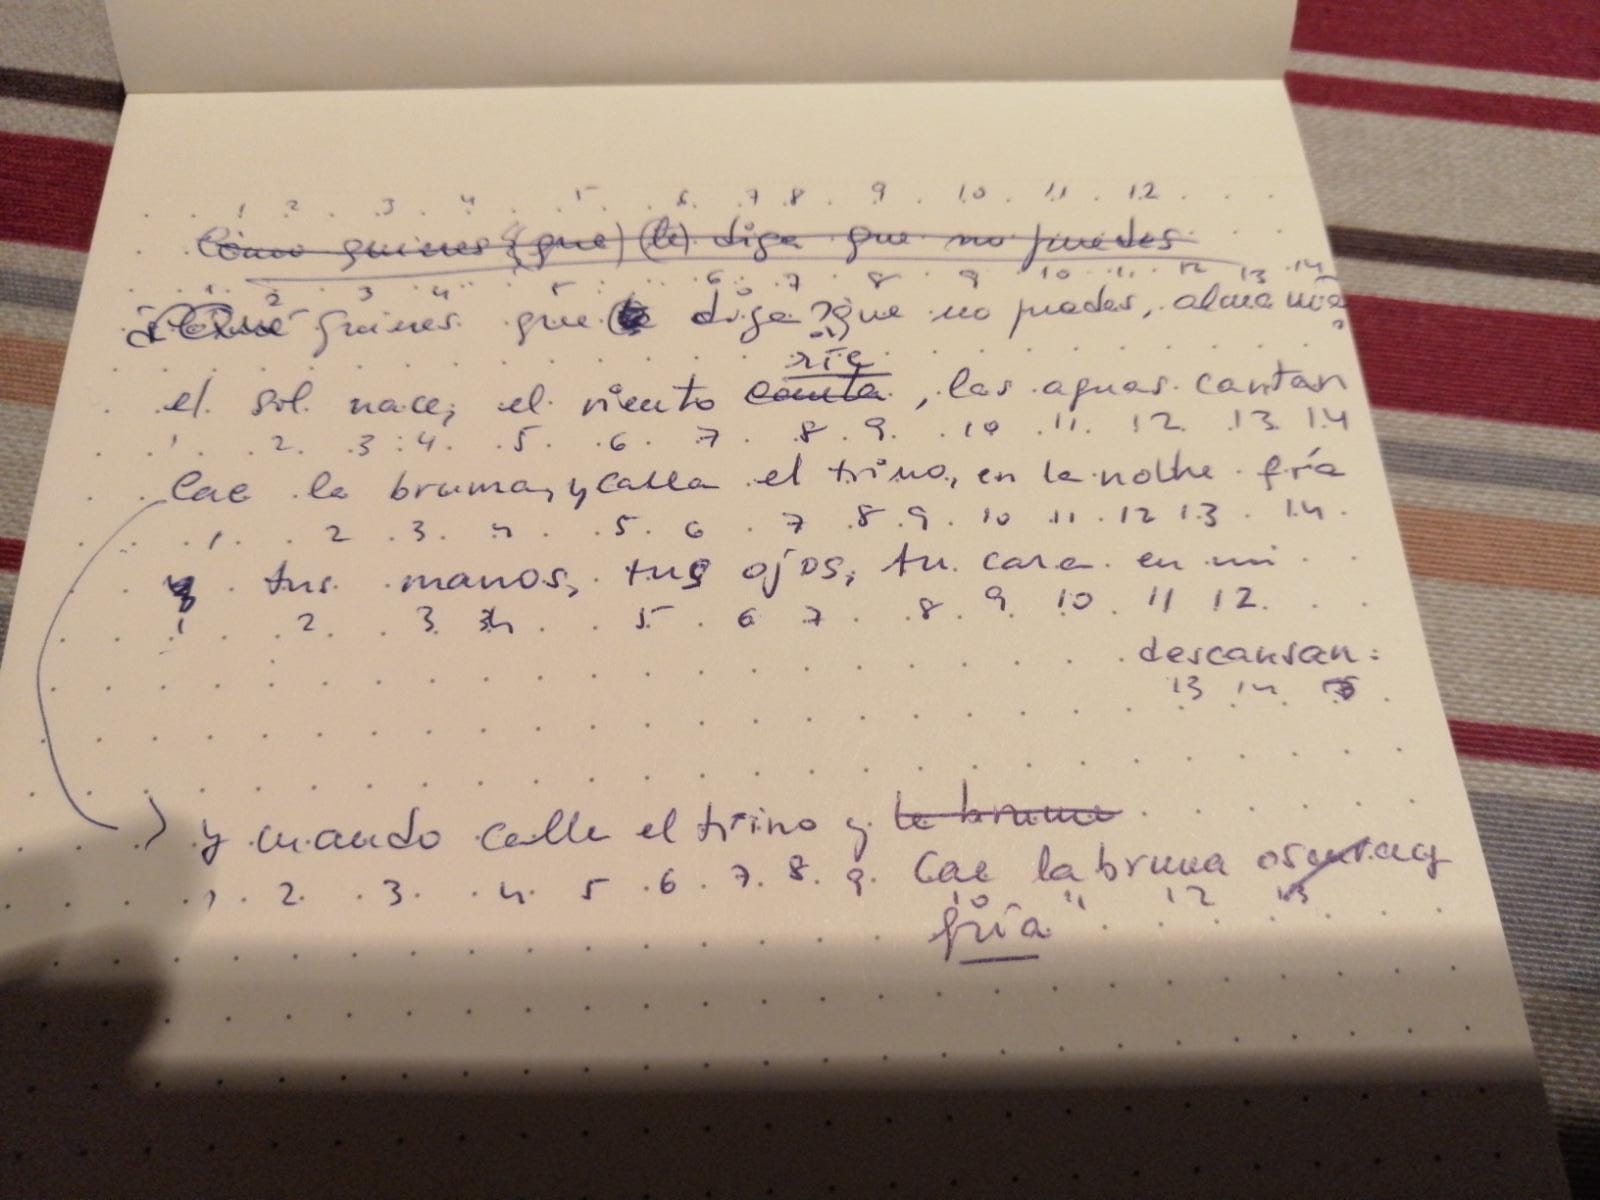 1 2 3 4 5 6 7 8 9 10 11 12
Cómo quieres (que) (te) diga que no puedes
1 2 3 4 5 6 7 8 9 10 11 12 13 14
quieres que diga? que no puedes, alma mía
ríe
el sol nace, el viento canta, las aguas cantan
1 2 3 4 5 6 7 8 9 10 11 12 13 14
Cae la bruma, y calla el trino, en la noche fría
1 2 3 4 5 6 7 8 9 10 11 12 13 14
y tus manos, tus ojos, tu cara en mi
1 2 3 4 5 6 7 8 9 10 11 12
descansan.
13 14
y cuando calle el trino y la bruma
cae la bruma oscura y
1 2 3 4 5 6 7 8 9 10 11 12 13
fría